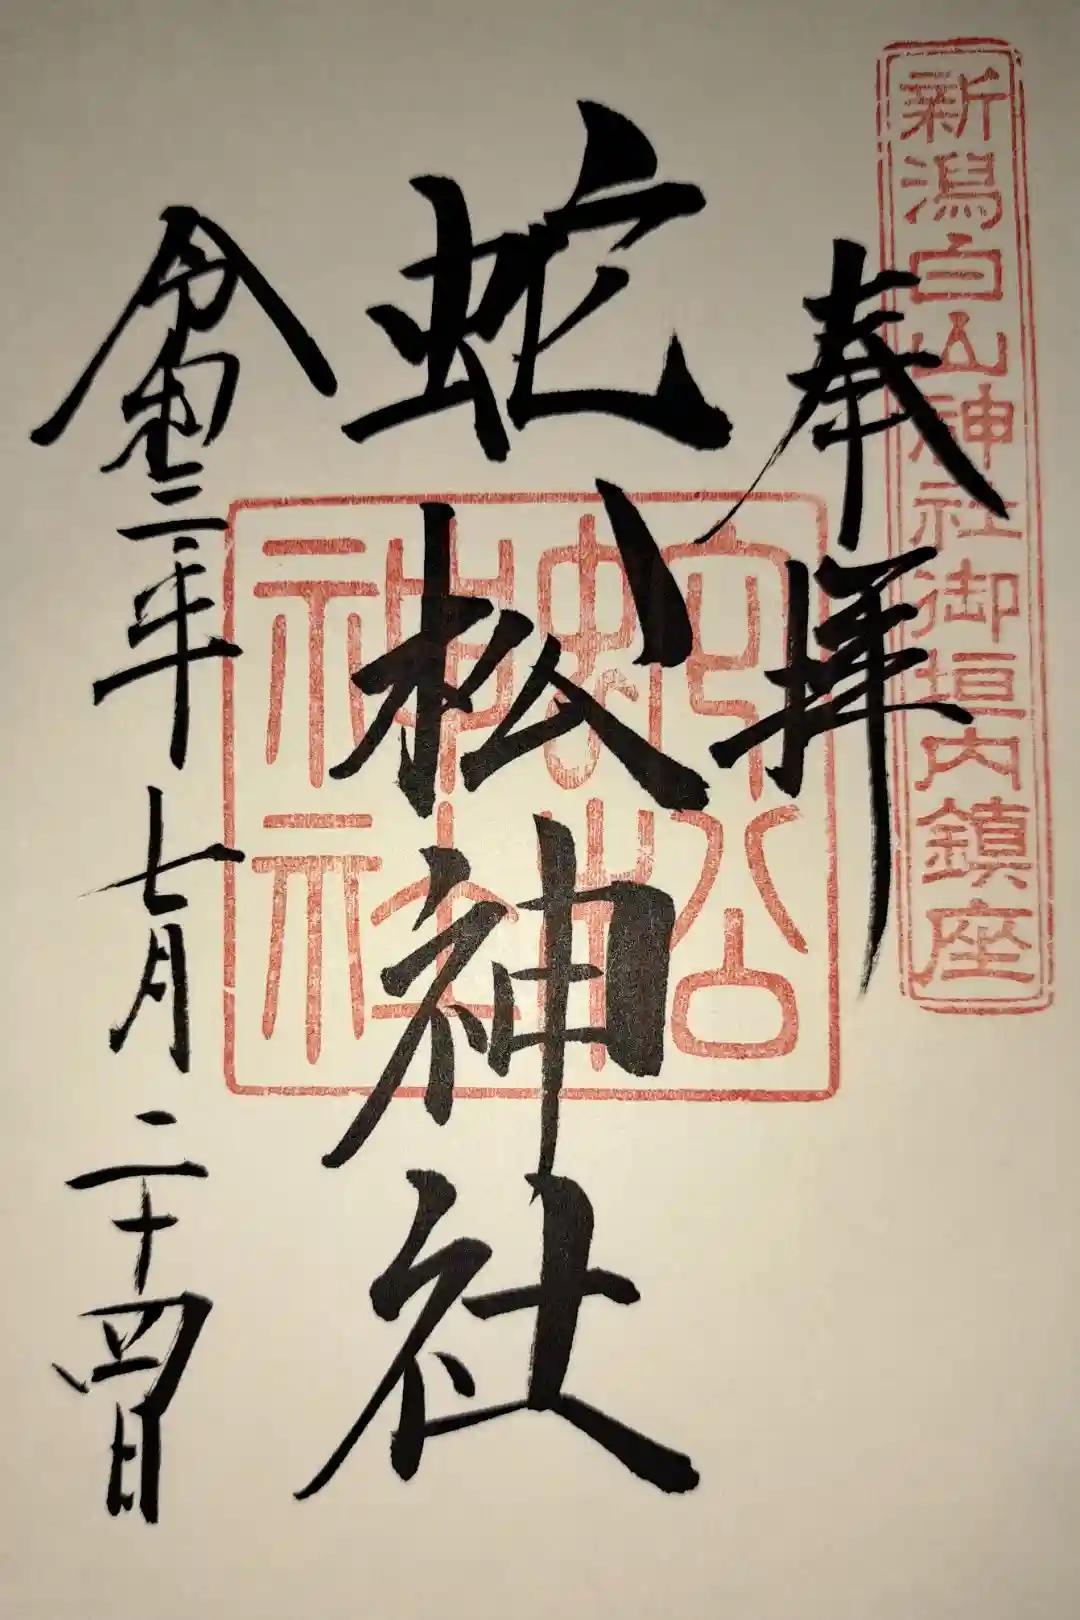 新潟白山神社御垣内鎮座
奉拝
蛇松神社
蛇松
神社
令和三年七月二十四日